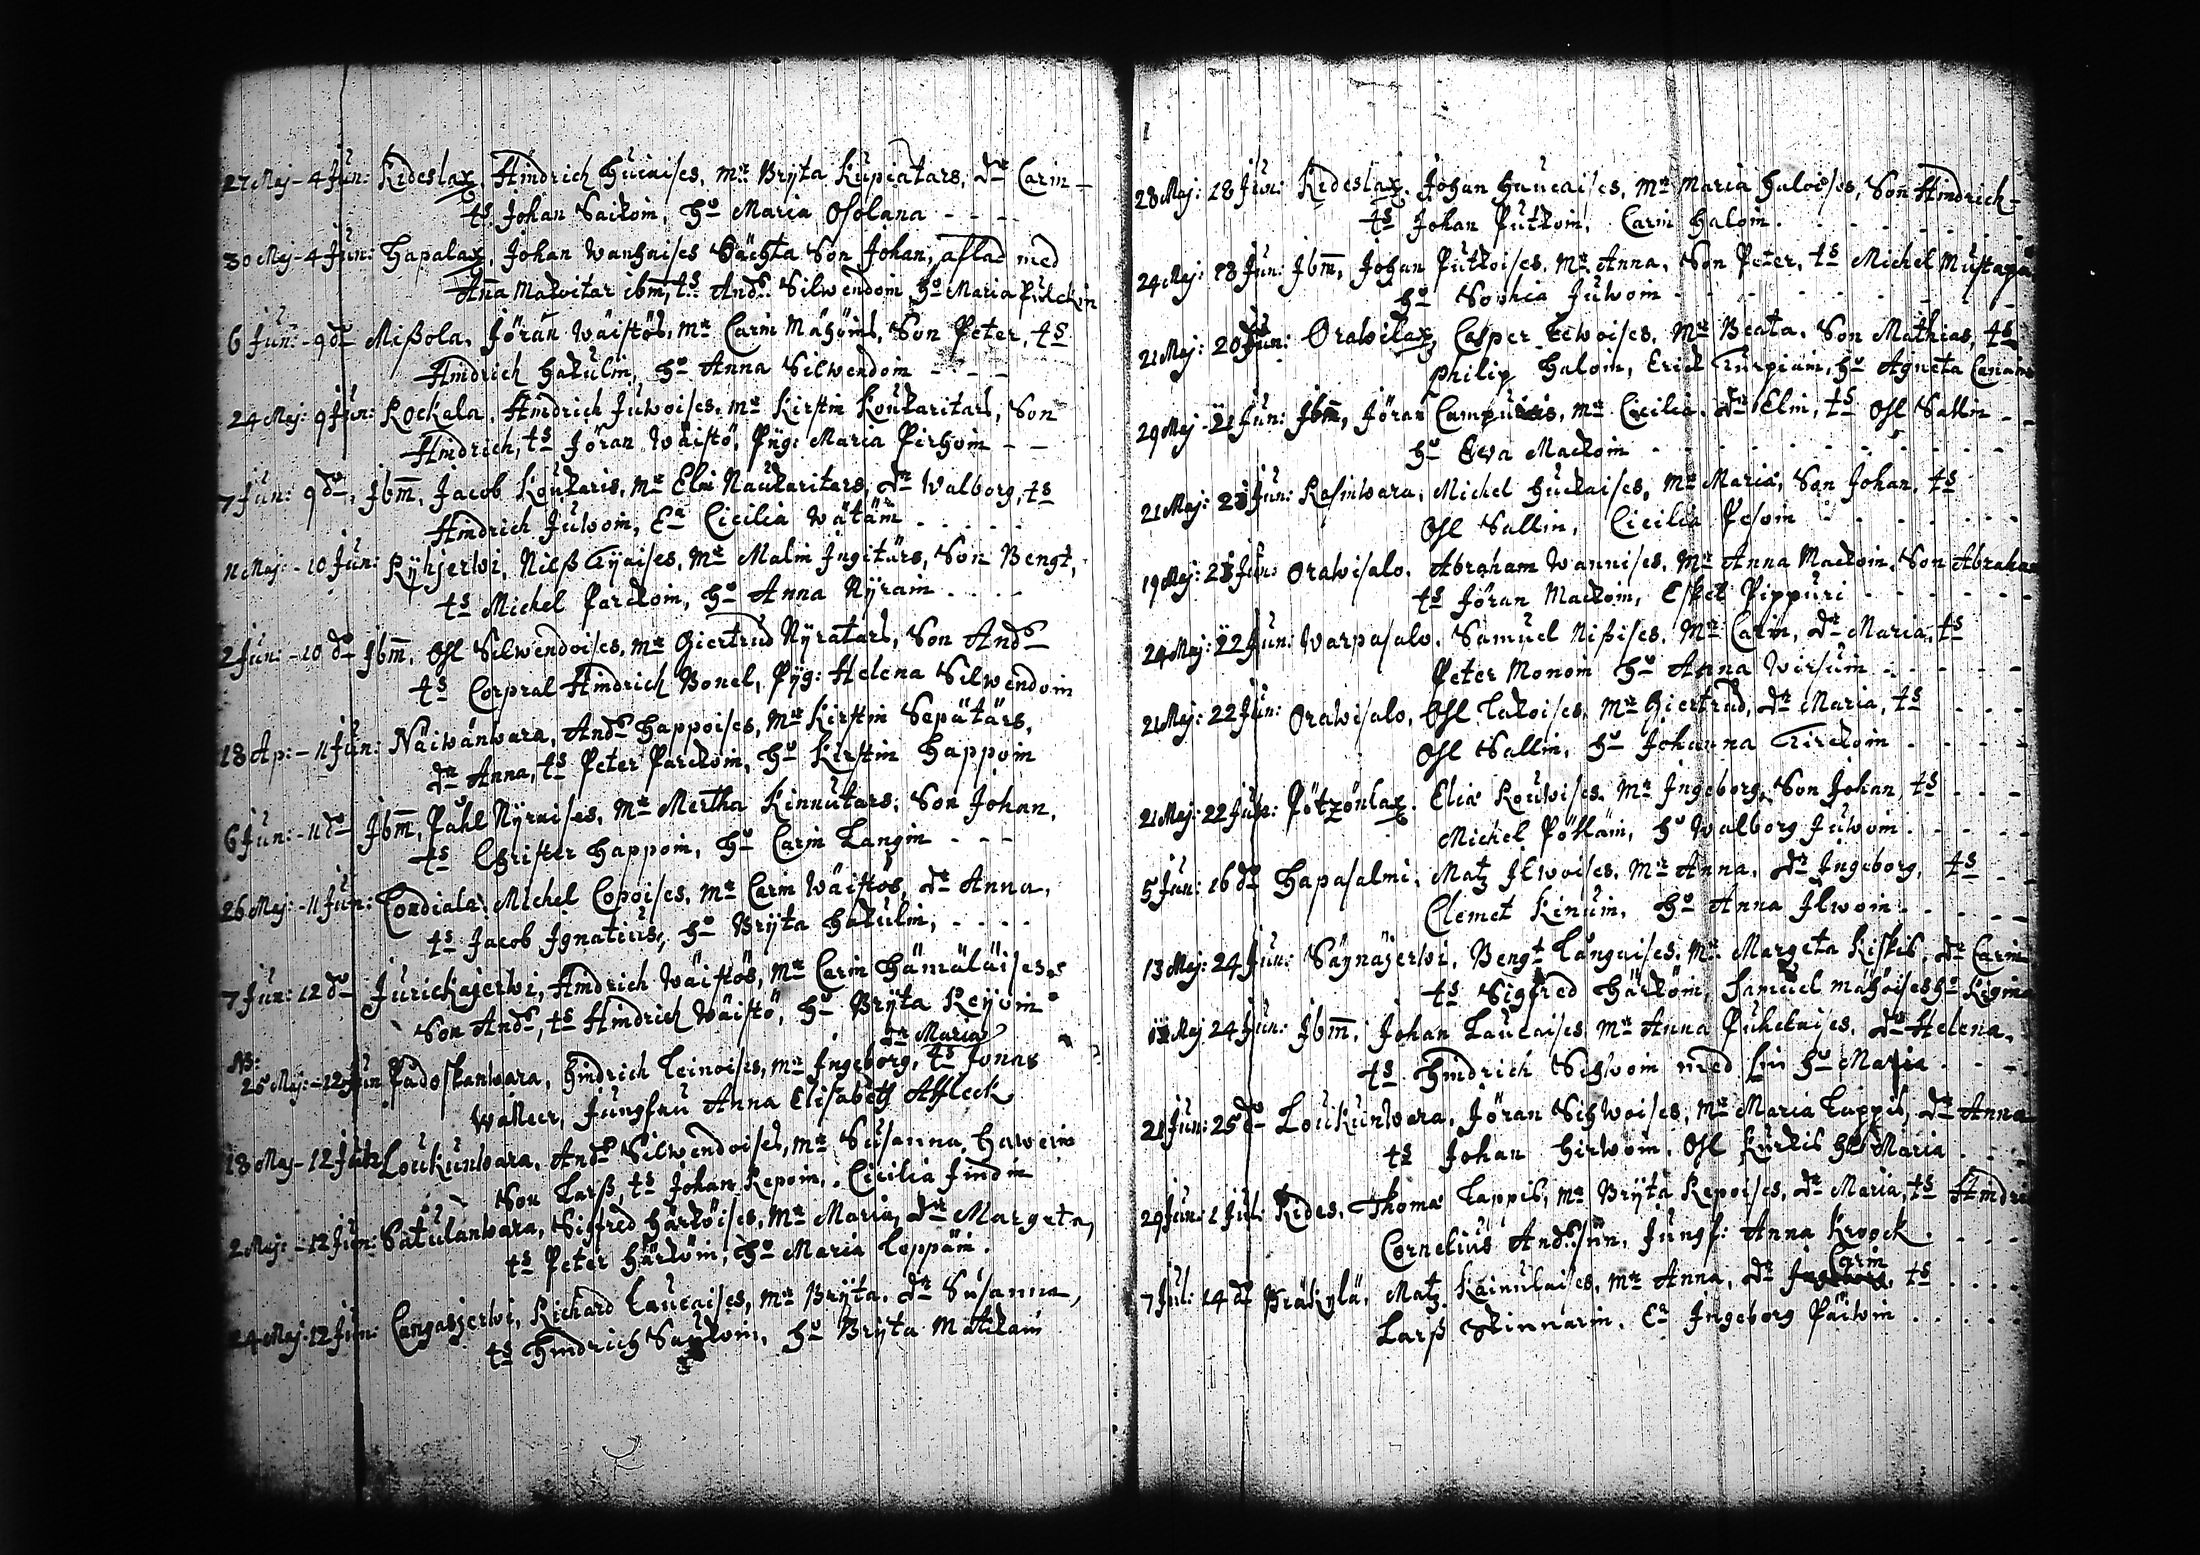 27 Maj - 4 Jun: Kideslax, Hindrich Hucaises, Mr Bryta Kupiatars, dr Carin -
ts Johan Saikoin, ho Maria Osolana - - - -
30 Maj - 4 Jun: Hapalax, Johan Wanhaises Son Johan, aflad med
Anna Makoitar ibm, ts Ands Silwendoin ho Maria Pulckin
6 Jun: - 9 do Mißola, Jöran Wäistös, Mr Carin Mähöins, Son Peter, ts
Hindrich Hakulin, ho Anna Silwendoin - - -
24 Maj: 9 Jun: Rockala, Hindrich Juwoises, Mr Kirstin Koukaritars, Son
Hindrich, ts Jöran Wäistö, Pyg: Maria Pirhoin - -
7 Jun: 9 do, Jbm, Jacob Koukaris, Mr Elin Naukaritars, dr Walborg, ts
Hindrich Juwoin, Ea Cicilia Wätäin . . . . .
11 Maj: - 10 Jun: Ryhjerwi, Nielß Tyaises, Mr Malin Ingitärs, Son Bengt,
ts Michel Parckoin, ho Anna Nyrain . . . .
2 Jun: - 10 do Jbm, Ohl Silwendoises, Mr Giertrud Nyratars, Son Ands
ts Corpral Hindrich Bonel, Pyg: Helena Silwendoin
18 Ap: - 11 Jun: Näiwänwara, Ands Happoises, Mr Kirstin Sepätärs,
dr Anna, ts Peter Parckoin, ho Kirstin Happoin
6 Jun: - 11 do Jbm, Påhl Nyraises, Mr Mertha Kinnutars, Son Johan,
ts Christer Happoin, ho Carin Langin - - -
26 Maj: - 11 Jun: Condiala, Michel Copoises, Mr Carin Wäistös, dr Anna,
ts Jacob Ignatius, ho Bryta Hakulin, - . . .
7 Jun: 12 do Jurickajerwi, Hindrich Wäistös, Mr Carin Hämäläises
Son Ands, ts Hindrich Wäistö, ho Bryta Reijoin
dr Maria
NB:
25 Maj: - 12 Jun Padoskanwara, Hindrich Leinoises, Mr Ingeborg, ts Jonas
Walleer, Jungfru Anna Elisabeth Affleck
18 Maj - 12 Jun Loukunwara, Ands Silwendoises, Mr Susanna Hawein
Son Larß, ts Johan Repoin, Cicilia Jindin
2 Maj: - 12 Jun: Satulanwara, Sigfred Härköises, Mr Maria, dr Margeta,
ts Peter Härköin, ho Maria Leppäin.
24 Maj: 12 Jun: Cangasjerwi, Richard Laucaises, Mr Bryta, dr Susanna,
ts Hindrich ho Bryta Matikain
28 Maj: 18 Jun: Kideslax. Johan Haucaises, Mr Maria Haloises, Son Hindrich -
ts Johan Putkoin, Carin Haloin. - - - - - -
24 Maj: 18 Jun: Jbm, Johan Putkoises, Mr Anna, Son Peter, ts Michel
ho Sophia Juwoin - - - - - -
21 Maj: 20 Jun: Orawilax, Casper Lewoises, Mr Beata, Son Mathias, ts
Philip Haloin, Erick Turpiain, ho Agneta
29 Maj - 21 Jun: Jbm, Jöran Mr Cicilia, dr Elin, ts Ohl Sallin - -
ho Ewa Mackoin - - - - - - -
21 Maj: 21 Jun: Rasinwara, Michel Huckaises, Mr Maria, Son Johan, ts
Ohl Sallin, Cicilia Pesoin - - - - - -
19 Maj: 21 Jun: Orawisalo, Abraham Wannises, Mr Anna Mackoin, Son Abraham
ts Jöran Mackoin, Eskel Pippuri - - - - - -
24 Maj: 22 Jun: Warpasalo, Samuel Nißises, Mr Carin, dr Maria, ts
Peter Monoin ho Anna Wirsuin - - - - -
21 Maj: 22 Jun: Orawisalo, Ohl Lakoises, Mr Giertrud, dr Maria, ts - - -
Ohl Sallin, ho Johanna Tirckoin - - - -
21 Maj: 22 Jun: Pötzönlax. Elia Rouwises, Mr Ingeborg, Son Johan, ts - - -
Michel Pölläin, ho Walborg Juwoin. - - - -
5 Jun: 16 do Hapasalmi, Matz Ilwoises, Mr Anna, dr Ingeborg, ts - -
Clemet Kinuin, ho Anna Ilwoin - - - - -
13 Maj: 24 Jun: Säynäjerwi, Bengt Långaises, Mr Margeta Kiskis, dr Carin
ts Sigfred Härköin, Samuel Mähöises ho Regina
Maj 24 Jun: Jbm, Johan Laucaises Mr Anna Puhekaises, dr Helena,
ts Hindrich Sihwoin med sin ho Maria - - - -
21 Jun: 25 do Loukunwara, Jöran Sihwoises, Mr Maria Lappis, dr Anna
ts Johan Hirwoin, Ohl Kurkis ho Maria . . .
29 Jun: 1 Jul: Kides, Thomas Lappis, Mr Bryta Repoises, dr Maria, ts
Cornelius Andssun, Jungf: Anna Kroock . - - -
Carin
7 Jul: 14 do Präkylä, Matz Kainulaises, Mr Anna, dr ts . . . .
Larß Skinnarin, Ea Ingeborg Päiwin . . . . .